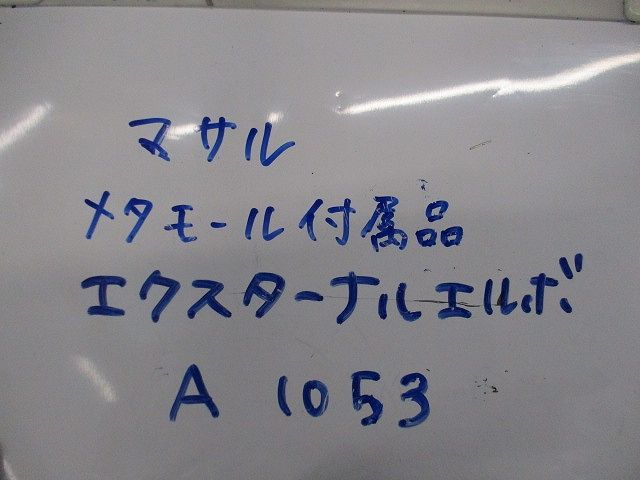 マサル
メタモール付属品
エクスターナルエルボ
A 1053